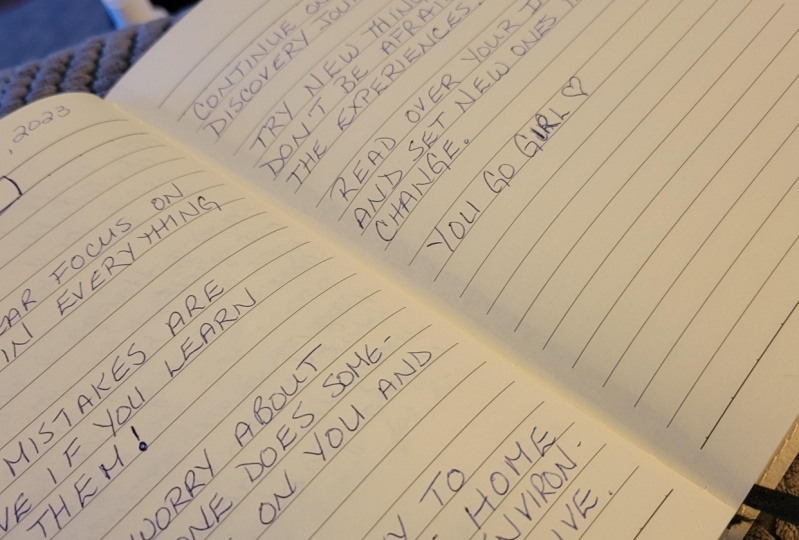 , 2023
FOCUS ON
IN EVERYTHING
MISTAKES ARE
IF YOU LEARN
THEM!
WORRY ABOUT
DOES SOME-
ON YOU AND
TO
HOME
CONTINUE
DISCOVERY
TRY NEW
DON'T BE AFRAI
THE EXPERIENCES.
READ OVER YOUR
AND SET NEW ONES
CHANGE.
YOU GO GIRL ♡